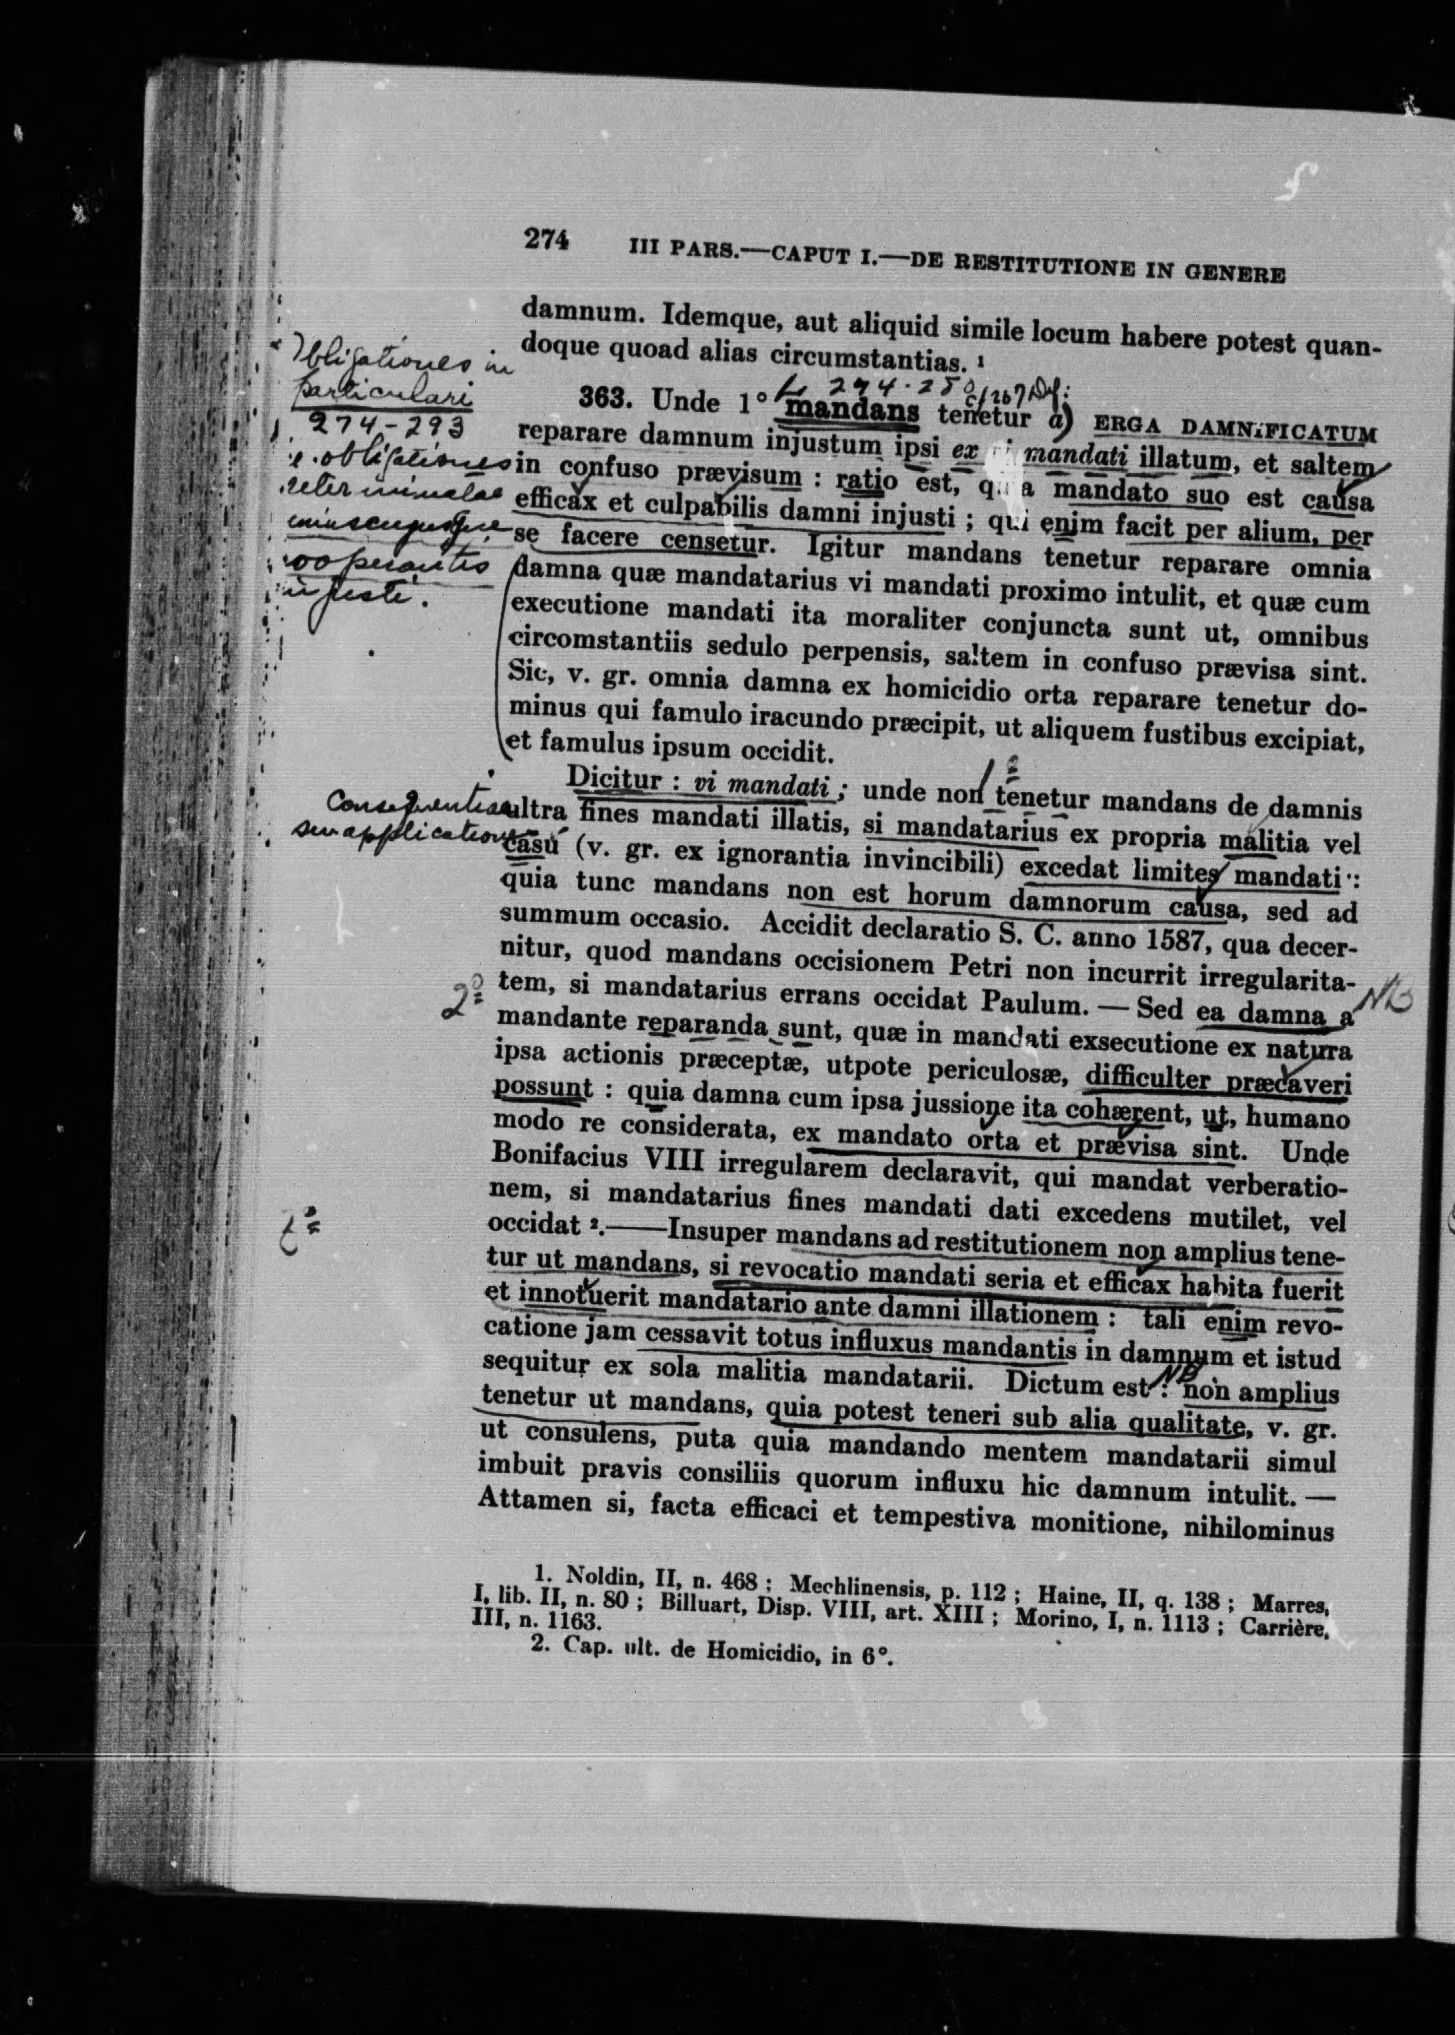 274 III PARS.—CAPUT I.—DE RESTITUTIONE IN GENERE
damnum. Idemque, aut aliquid simile locum habere potest quan-
doque quoad alias circumstantias. ¹
Obligationes in
particulari
274-293
obligationes
determinatae
cujuscumque
cooperantis
injusti.
274-28 cf 267 Def:
363. Unde 1° mandans tenetur a) ERGA DAMNIFICATUM
reparare damnum injustum ipsi ex vi mandati illatum, et saltem
in confuso prævisum : ratio est, quia mandato suo est causa
efficax et culpabilis damni injusti ; qui enim facit per alium, per
se facere censetur. Igitur mandans tenetur reparare omnia
damna quæ mandatarius vi mandati proximo intulit, et quæ cum
executione mandati ita moraliter conjuncta sunt ut, omnibus
circomstantiis sedulo perpensis, saltem in confuso prævisa sint.
Sic, v. gr. omnia damna ex homicidio orta reparare tenetur do-
minus qui famulo iracundo præcipit, ut aliquem fustibus excipiat,
et famulus ipsum occidit.
1º
Consequentiae
seu applicationes
Dicitur : vi mandati ; unde non tenetur mandans de damnis
ultra fines mandati illatis, si mandatarius ex propria malitia vel
casu (v. gr. ex ignorantia invincibili) excedat limites mandati :
quia tunc mandans non est horum damnorum causa, sed ad
summum occasio. Accidit declaratio S. C. anno 1587, qua decer-
nitur, quod mandans occisionem Petri non incurrit irregularita-
2º
NB
tem, si mandatarius errans occidat Paulum. — Sed ea damna a
mandante reparanda sunt, quæ in mandati exsecutione ex natura
ipsa actionis præceptæ, utpote periculosæ, difficulter præcaveri
possunt : quia damna cum ipsa jussione ita cohærent, ut, humano
modo re considerata, ex mandato orta et prævisa sint. Unde
Bonifacius VIII irregularem declaravit, qui mandat verberatio-
nem, si mandatarius fines mandati dati excedens mutilet, vel
occidat ².——Insuper mandans ad restitutionem non amplius tene-
tur ut mandans, si revocatio mandati seria et efficax habita fuerit
et innotuerit mandatario ante damni illationem : tali enim revo-
catione jam cessavit totus influxus mandantis in damnum et istud
NB
sequitur ex sola malitia mandatarii. Dictum est : non amplius
tenetur ut mandans, quia potest teneri sub alia qualitate, v. gr.
ut consulens, puta quia mandando mentem mandatarii simul
imbuit pravis consiliis quorum influxu hic damnum intulit. —
Attamen si, facta efficaci et tempestiva monitione, nihilominus
1. Noldin, II, n. 468 ; Mechlinensis, p. 112 ; Haine, II, q. 138 ; Marres,
I, lib. II, n. 80 ; Billuart, Disp. VIII, art. XIII ; Morino, I, n. 1113 ; Carrière,
III, n. 1163.
2. Cap. ult. de Homicidio, in 6°.